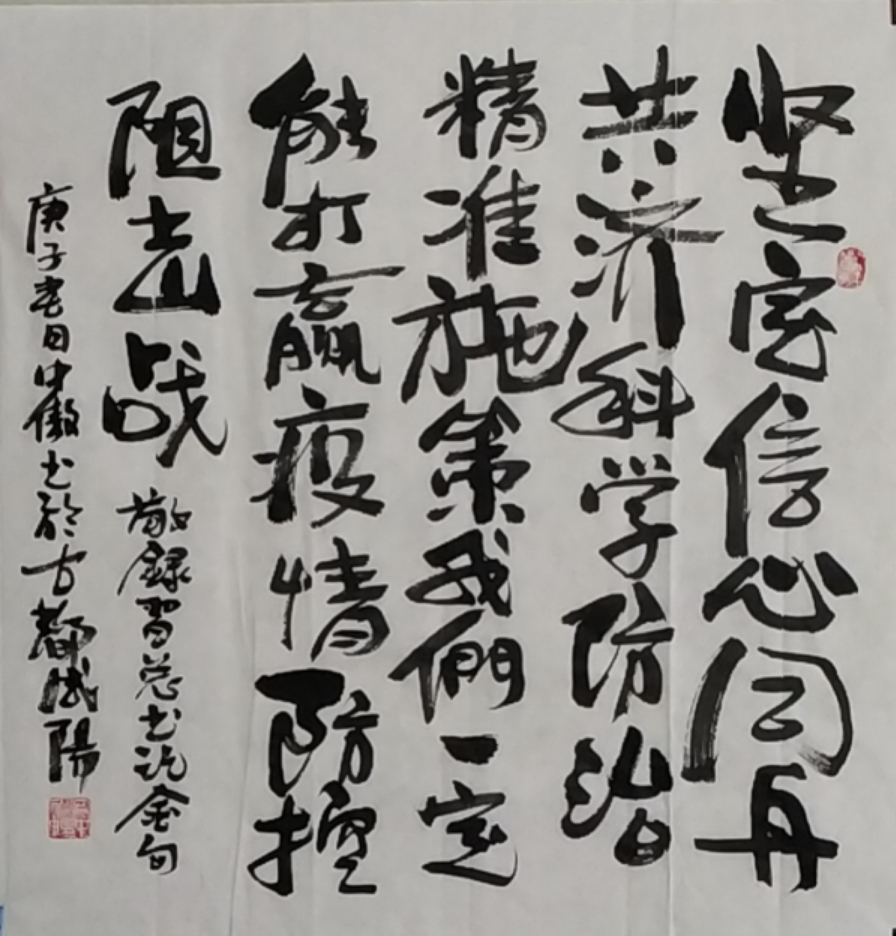 坚定信心同舟
共济科学防治
精准施策我們一定
能打赢疫情防控
阻击战
敬録習总书记金句
庚子春日中傲书於古都咸陽